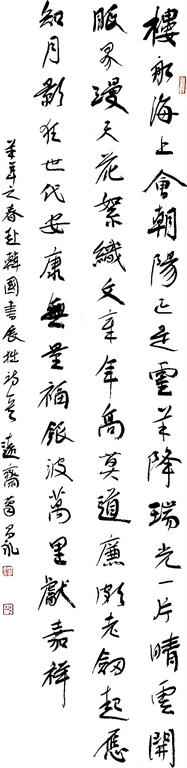 樓船海上會朝陽已是靈羊降瑞光一片晴雲開
眼界漫天花絮織文章年高莫道廉頗老劍起應
知月影狂世代安康無量福銀波萬里獻嘉祥
羊年之春赴韓國書展拙詩遠齋